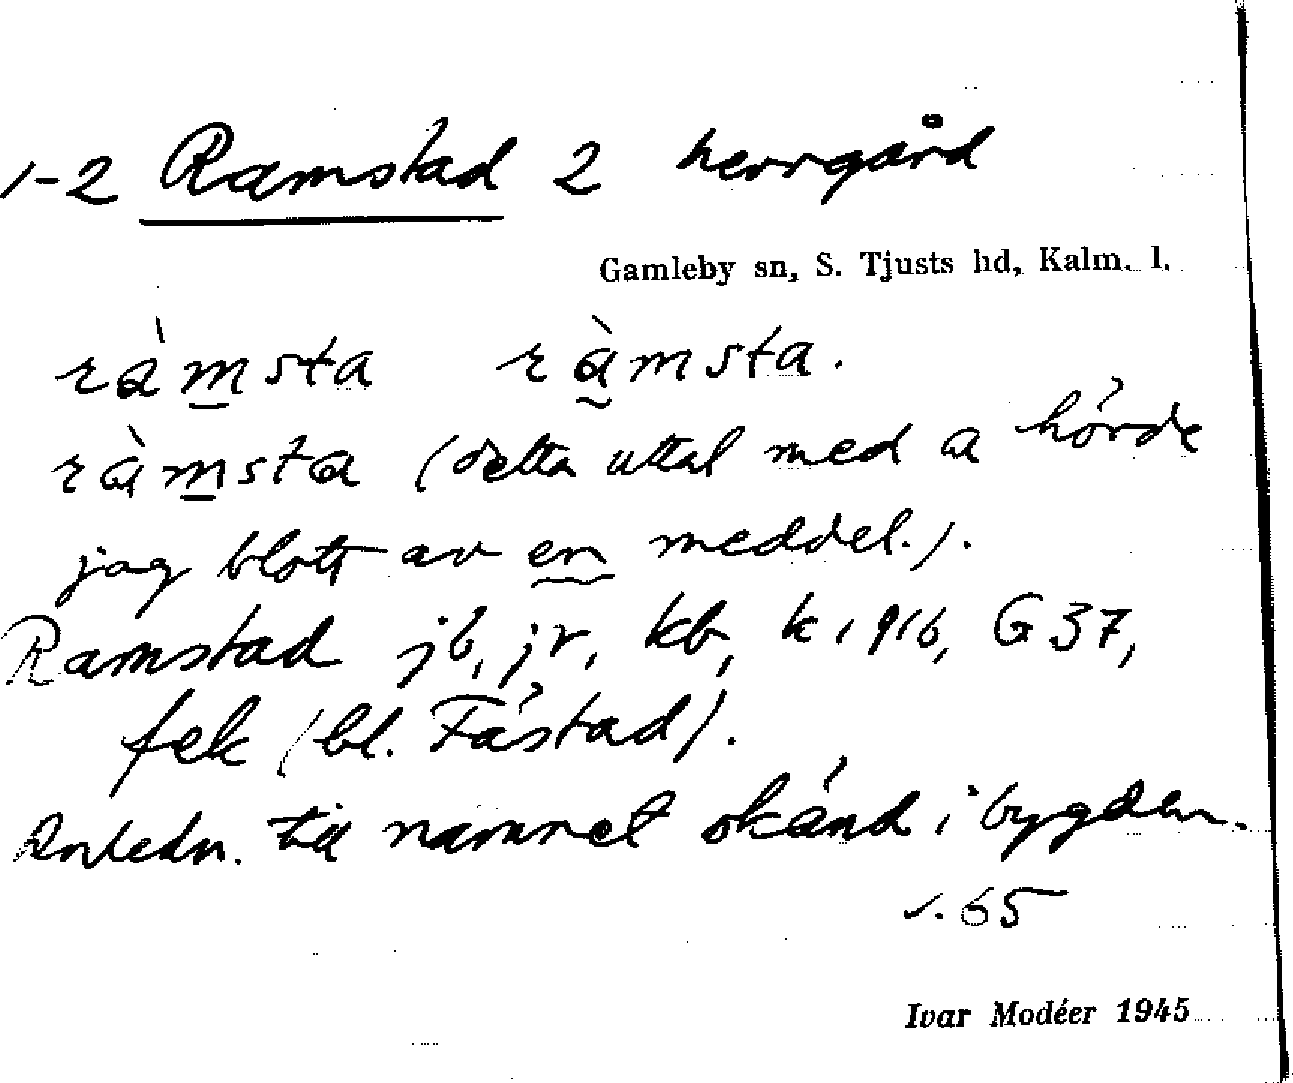 1-2 Ramstad 2 herrgård
Gamleby sn, S. Tjusts hd, Kalm. l.
ràmsta ràmsta.
ràmsta (detta uttal med a hörde
jag blott av en meddel.).
Ramstad jb, jr, kb, k 1916, G 37,
fek (bl. Fåstad).
Anledn. till namnet okänd i bygden.
s. 65
Ivar Modéer 1945